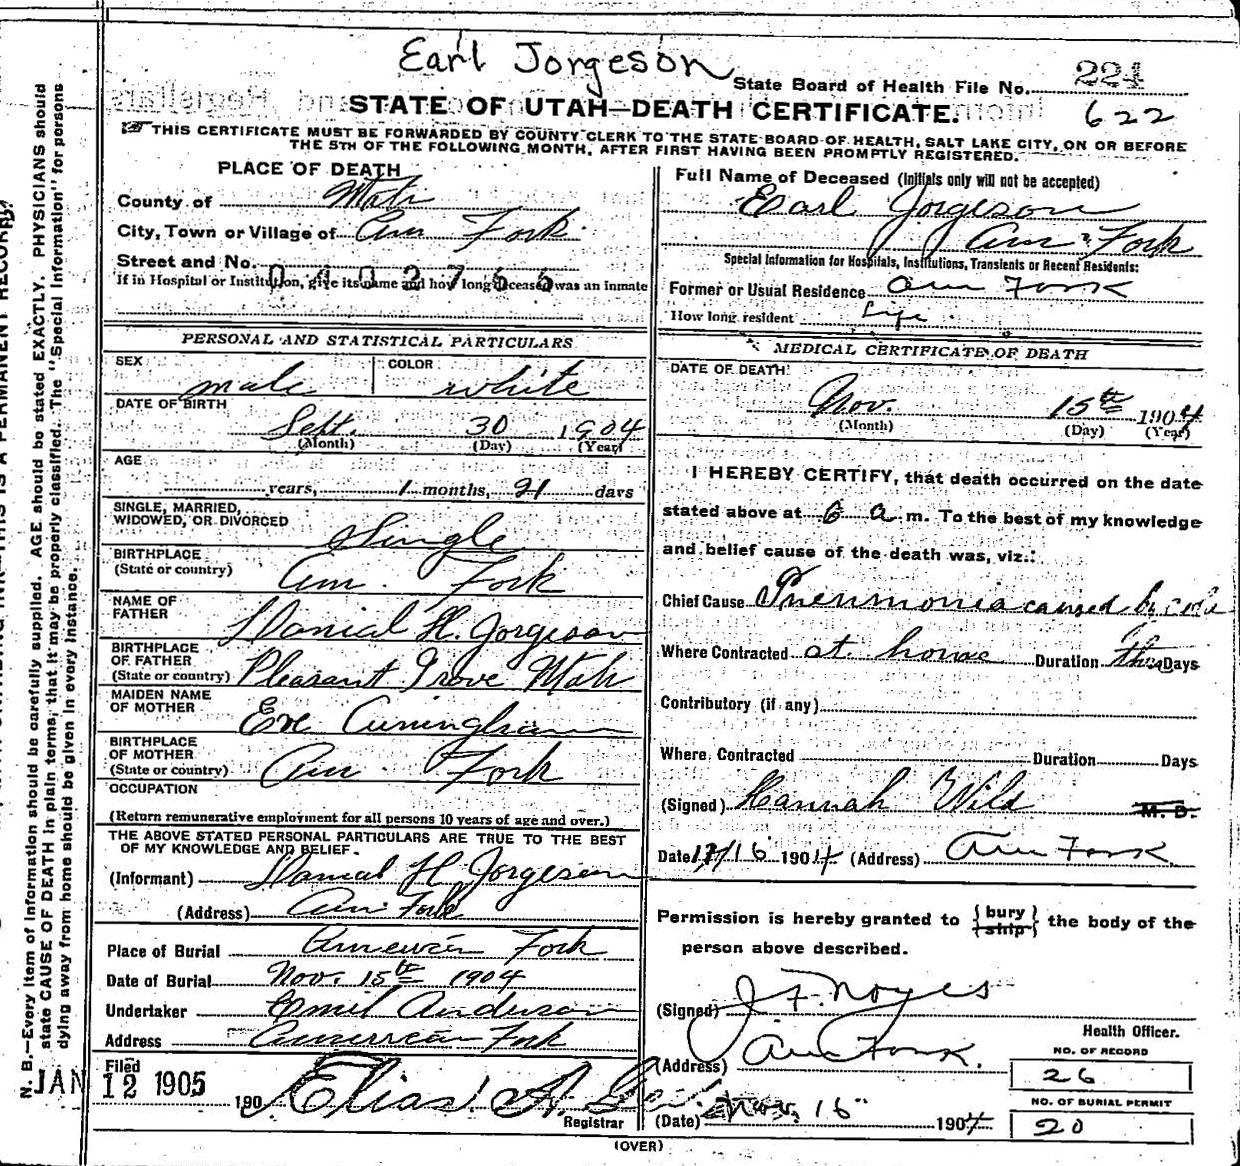 Earl Jorgeson
State Board of Health File No. 224
622
STATE OF UTAH—DEATH CERTIFICATE.
THIS CERTIFICATE MUST BE FORWARDED BY COUNTY CLERK TO THE STATE BOARD OF HEALTH, SALT LAKE CITY, ON OR BEFORE
THE 5TH OF THE FOLLOWING MONTH, AFTER FIRST HAVING BEEN PROMPTLY REGISTERED.
PLACE OF DEATH
County of Utah
City, Town or Village of Am Fork
Street and No.
0402755
If in Hospital or Institution, give its name and how long deceased was an inmate
PERSONAL AND STATISTICAL PARTICULARS
SEX male COLOR white
DATE OF BIRTH
Sept. 30 1904
(Month) (Day) (Year)
AGE
years, 1 months, 21 days
SINGLE, MARRIED,
WIDOWED, OR DIVORCED Single
BIRTHPLACE
(State or country) Am. Fork
NAME OF
FATHER Danial H. Jorgeson
BIRTHPLACE
OF FATHER
(State or country) Pleasant Grove Utah
MAIDEN NAME
OF MOTHER Eve Cuningham
BIRTHPLACE
OF MOTHER
(State or country) Am. Fork
OCCUPATION
(Return remunerative employment for all persons 10 years of age and over.)
THE ABOVE STATED PERSONAL PARTICULARS ARE TRUE TO THE BEST
OF MY KNOWLEDGE AND BELIEF.
(Informant) Danial H. Jorgeson
(Address) Am Fork
Place of Burial American Fork
Date of Burial Nov. 15th 1904
Undertaker Emil Anderson
Address American Fork
Filed
JAN 12 1905 190 Elias A.
Registrar
Full Name of Deceased (Initials only will not be accepted)
Earl Jorgeson
Am Fork
Special Information for Hospitals, Institutions, Transients or Recent Residents:
Former or Usual Residence Am Fork
How long resident Life
MEDICAL CERTIFICATE OF DEATH
DATE OF DEATH
Nov. 15th 1904
(Month) (Day) (Year)
I HEREBY CERTIFY, that death occurred on the date
stated above at 6 a m. To the best of my knowledge
and belief cause of the death was, viz.:
Chief Cause Pneumonia caused by
Where Contracted at home Duration Days
Contributory (if any)
Where Contracted Duration Days
(Signed) Hannah Wild M. D.
Date 11/16 1904 (Address) Am Fork
Permission is hereby granted to {bury / ship} the body of the
person above described.
(Signed) J. F. Noyes
Health Officer.
(Address) Am Fork.
NO. OF RECORD
26
NO. OF BURIAL PERMIT
20
(Date) Nov. 16" 1904
(OVER)
N. B.—Every item of information should be carefully supplied. AGE should be stated EXACTLY. PHYSICIANS should
state CAUSE OF DEATH in plain terms, that it may be properly classified. The "Special Information" for persons
dying away from home should be given in every instance.
THIS IS A PERMANENT RECORD